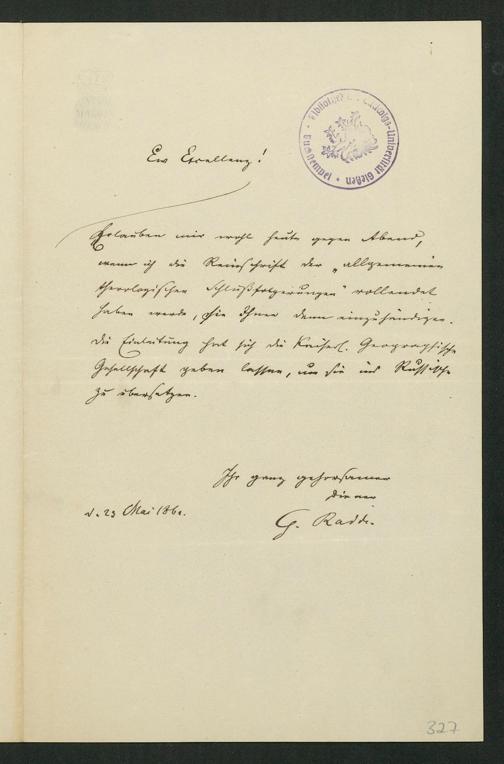 Ew Excellenz!
Erlauben mir wohl heute gegen Abend,
wenn ich die Reinschrift der „allgemeinen
theologischen Schlußfolgerungen" vollendet
haben werde, sie Ihnen dann einzuhändigen.
Die Einleitung hat sich die Kaiserl. Geographische
Gesellschaft geben lassen, um sie ins Russische
zu übersetzen.
Ihr ganz gehorsamer
Diener
G. Radde.
d. 23 Mai 186
Bibliothek der Ludwigs-Universität Gießen
327